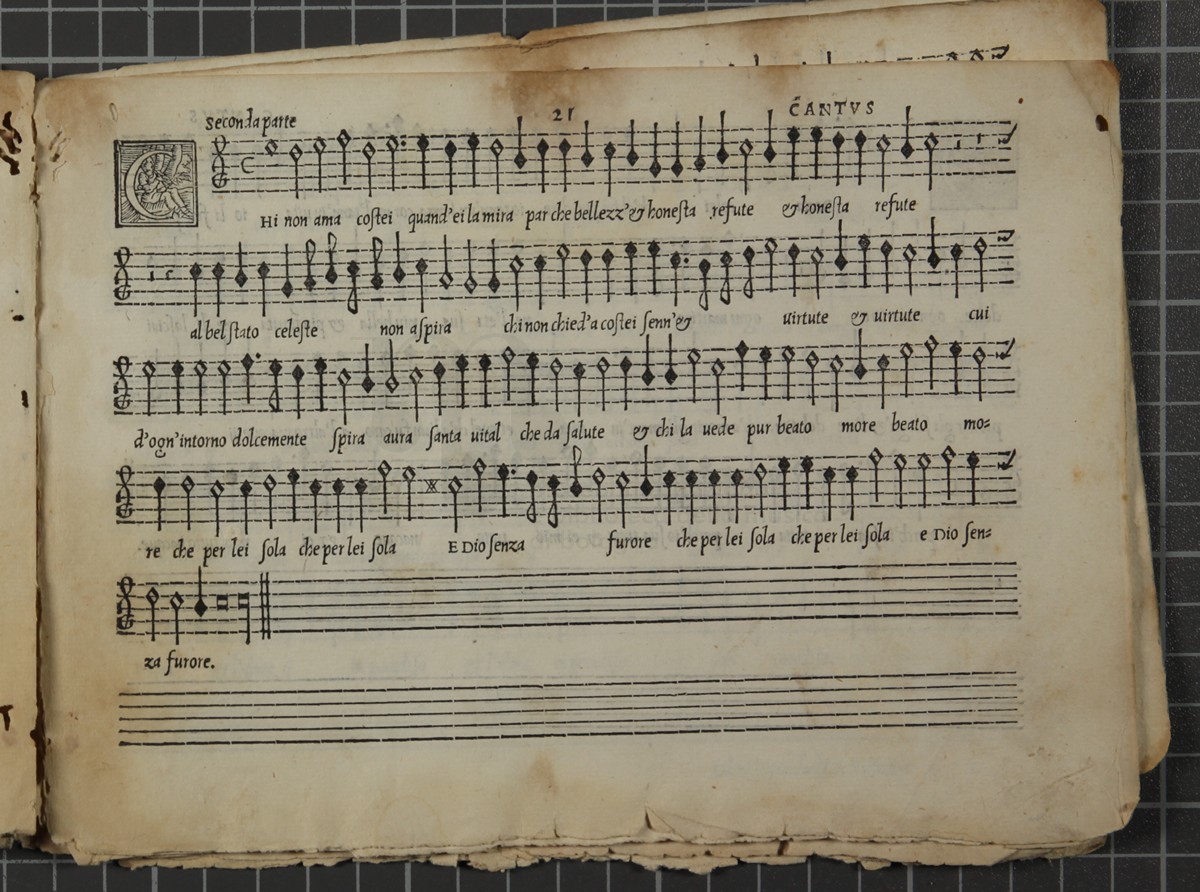 Seconda parte 21 CANTVS
CHi non ama costei quand'ei la mira par che bellezz'& honesta refute & honesta refute
al bel stato celeste non aspira chi non chied'a costei senn'& uirtute & uirtute cui
d'ogn'intorno dolcemente spira aura santa uital che da salute & chi la uede pur beato more beato mo=
re che per lei sola che per lei sola E Dio senza furore che per lei sola che per lei sola e Dio sen=
za furore.